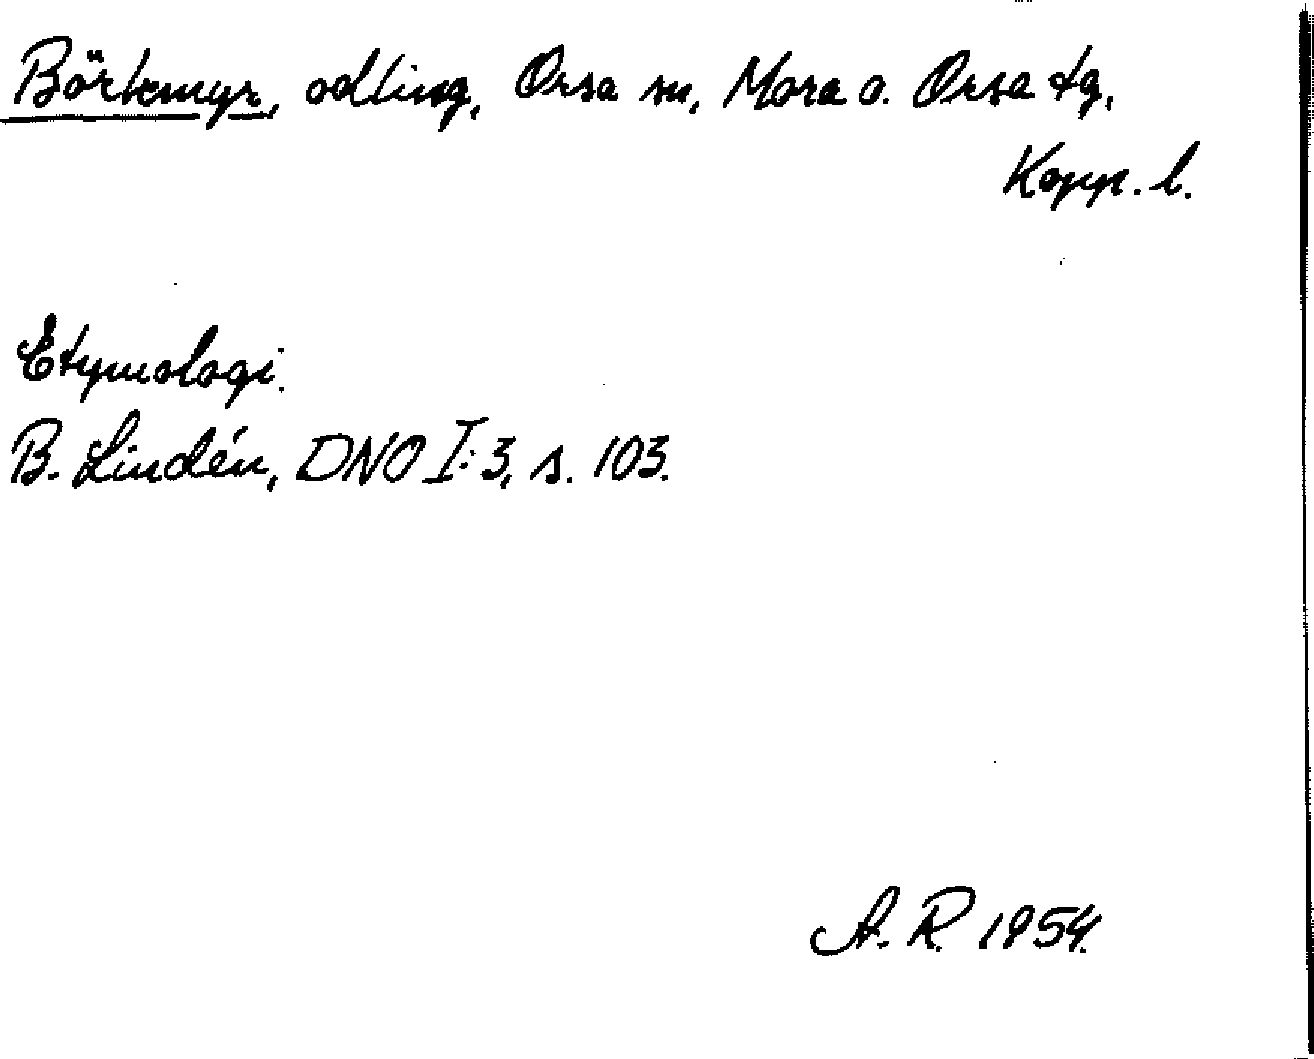 Börkmyr, odling, Orsa sn, Mora o. Orsa tg,
Kopp. l.
Etymologi.
B. Lindén, DNO I:3, s. 103.
A. R. 1954.